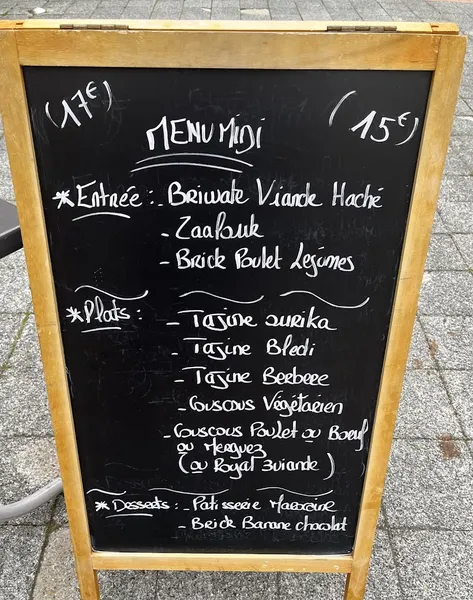 (17€)
(15€)
MENU MIDI
* Entrée : - Briwate Viande Haché
- Zaalouk
- Brick Poulet Légumes
* Plats :
- Tajine ourika
- Tajine Bledi
- Tajine Berbere
- Couscous Végétarien
- Couscous Poulet ou Boeuf
ou Merguez
(ou Royal 3 viande)
* Desserts : - Patisserie Marocaine
- Brick Banane chocolat